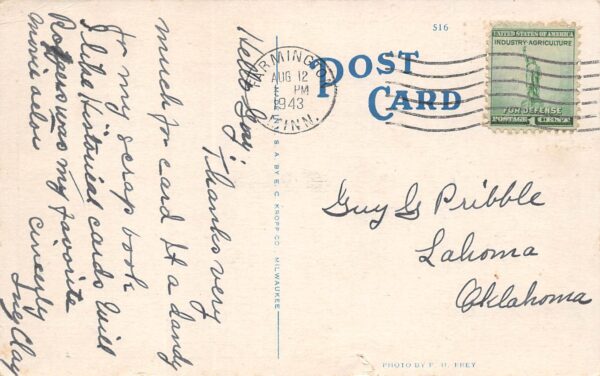 516
POST
CARD
FARMINGTON
AUG 12
PM
1943
MINN.
UNITED STATES OF AMERICA
INDUSTRY-AGRICULTURE
FOR DEFENSE
POSTAGE 1 CENT
Hello Guy:
Thanks very
much for card It a dandy
for my scrap book
I like historical cards Will
Rodgers was my favorite
movie actor
Cincerly
Clay
S. A. BY E. C. KROPP CO. MILWAUKEE
Guy G Pribble
Lahoma
Oklahoma
PHOTO BY F. H. FREY